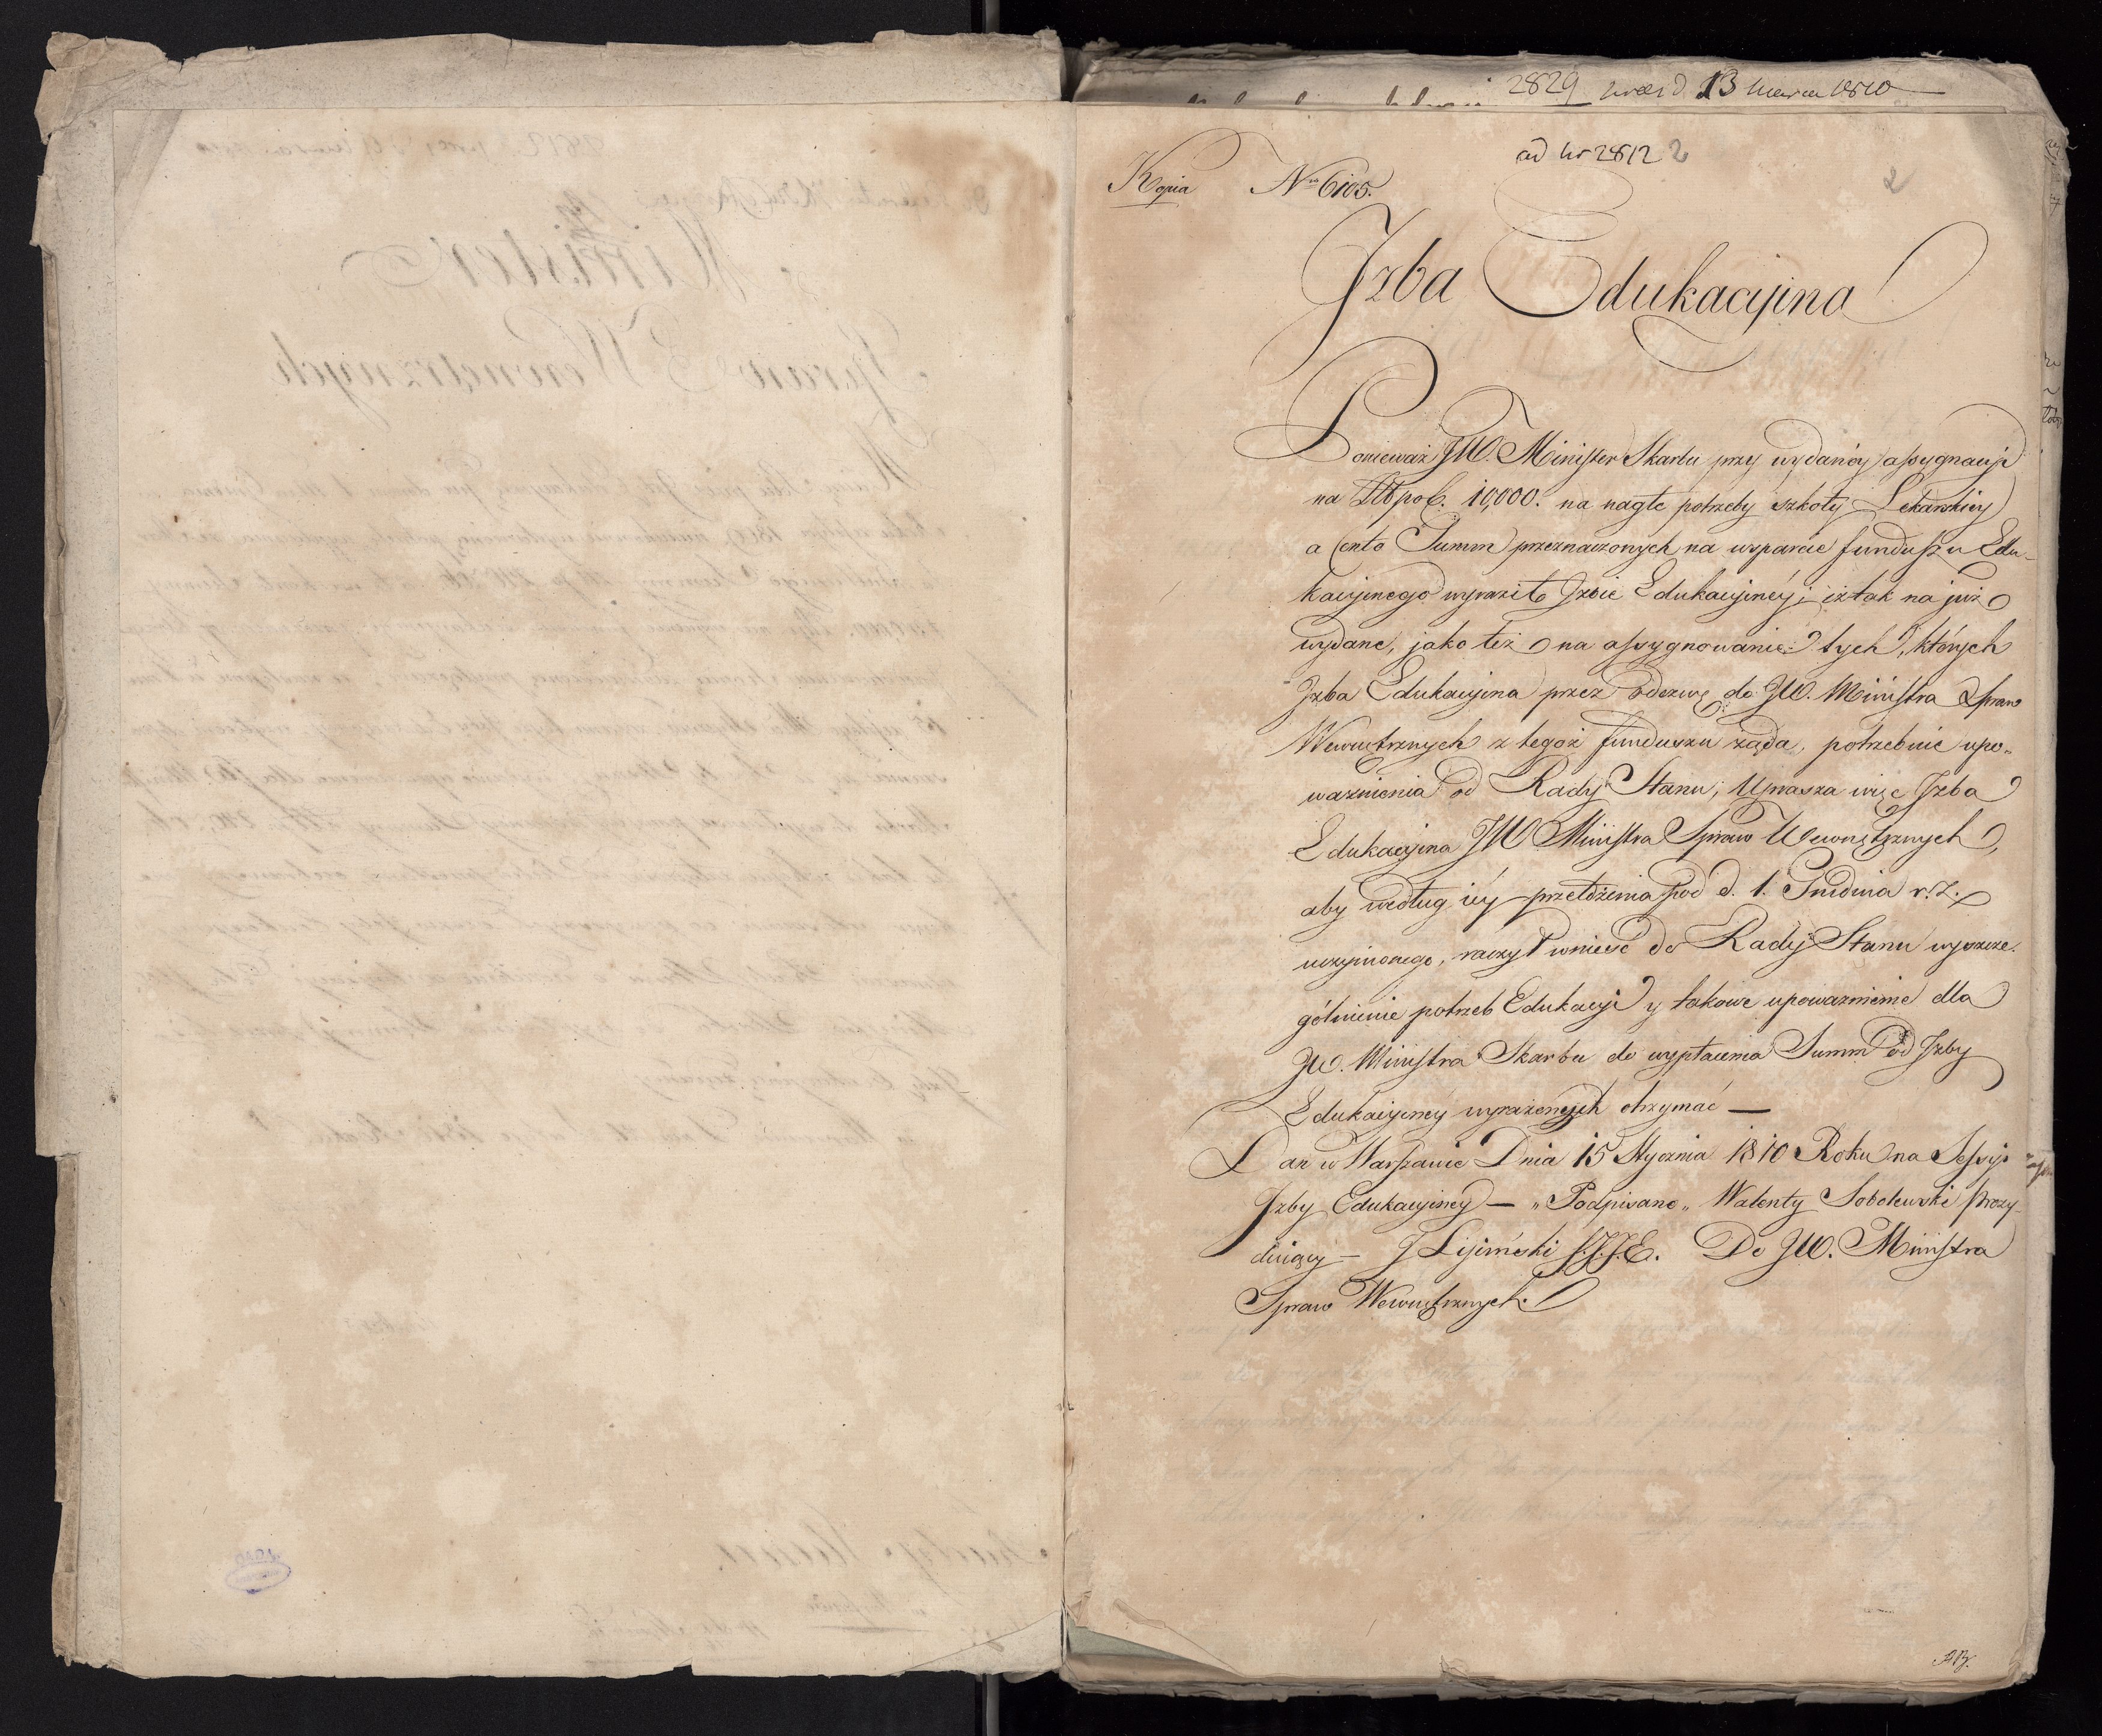 2829 13 1810
ad Nr 2812 2
2
Kopia Nro 6105.
Jzba Edukacyina
Ponieważ JW. Minister Skarbu przy wydanéy assygnacyi
na Złł pol. 10,000. na nagłe potrzeby szkoły Lekarskiey
a Conto Summ przeznaczonych na wsparcie funduszu Edu-
kacyinego wyraził Jzbie Edukacyinéy; iż tak na już
wydane, jako też na assygnowanie tych, których
Jzba Edukacyina przez odezwę do JW. Ministra Spraw
Wewnętrznych z tegoż funduszu żąda, potrzebuie upo-
ważnienia od Rady Stanu; Uprasza więc Jzba
Edukacyina JW Ministra Spraw Wewnętrznych,
aby według iéy przełożenia pod d. 1. Grudnia r. z.
uczynionego, raczył wnieść do Rady Stanu wyszcze-
gólnienie potrzeb Edukacyi y takowe upoważnienie dla
JW. Ministra Skarbu do wypłacenia Summ od Jzby
Edukacyinéy wyrażonych otrzymać —
Dan w Warszawie Dnia 15 Stycznia 1810 Roku na Sessyi
Jzby Edukacyinéy — „Podpisano„ Walenty Sobolewski Prezy-
duiący — J Lipiński S.J.J.E. Do JW. Ministra
Spraw Wewnętrznych.